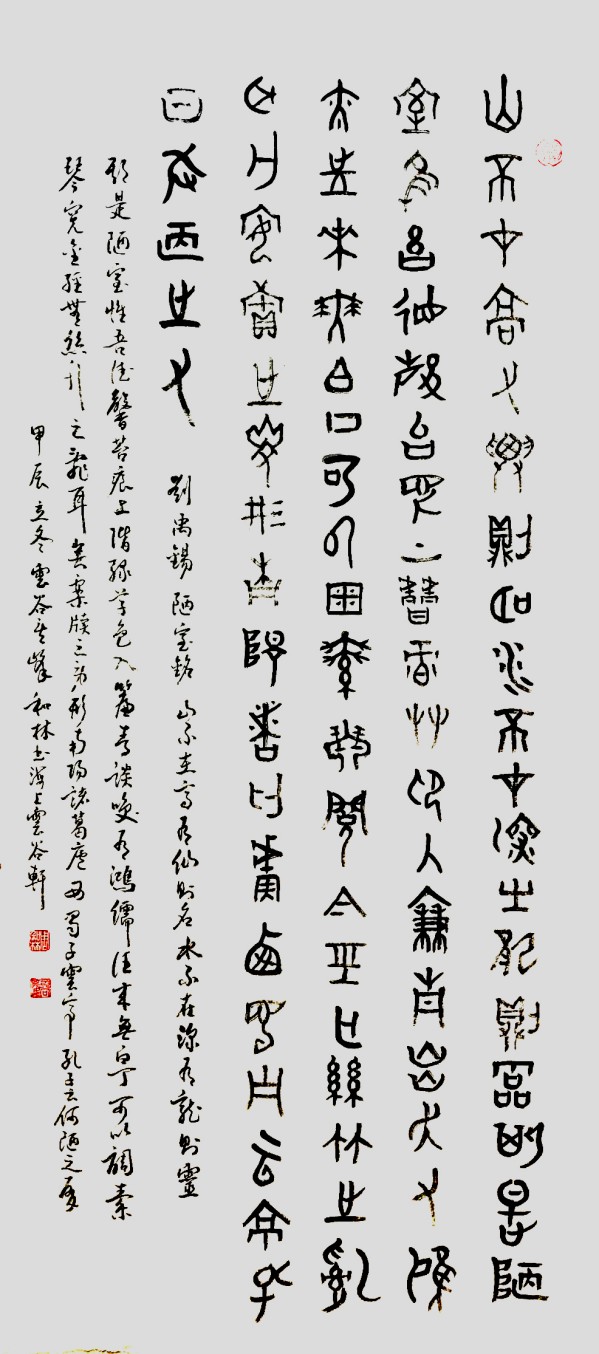 山不在高有仙則名水不在深有龍則靈斯是陋
室惟吾德馨苔痕上階綠草色入簾青談笑有鴻
儒往來無白丁可以調素琴閱金經無絲竹之亂
耳無案牘之勞形南陽諸葛廬西蜀子雲亭孔
曰何陋之有
劉禹錫 陋室銘 山不在高有仙則名水不在深有龍則靈
斯是陋室惟吾德馨苔痕上階綠草色入簾青談笑有鴻儒往來無白丁可以調素
琴閱金經無絲竹之亂耳無案牘之勞形南陽諸葛廬西蜀子雲亭孔子云何陋之有
甲辰立冬雲谷峰和林書海上雲谷軒